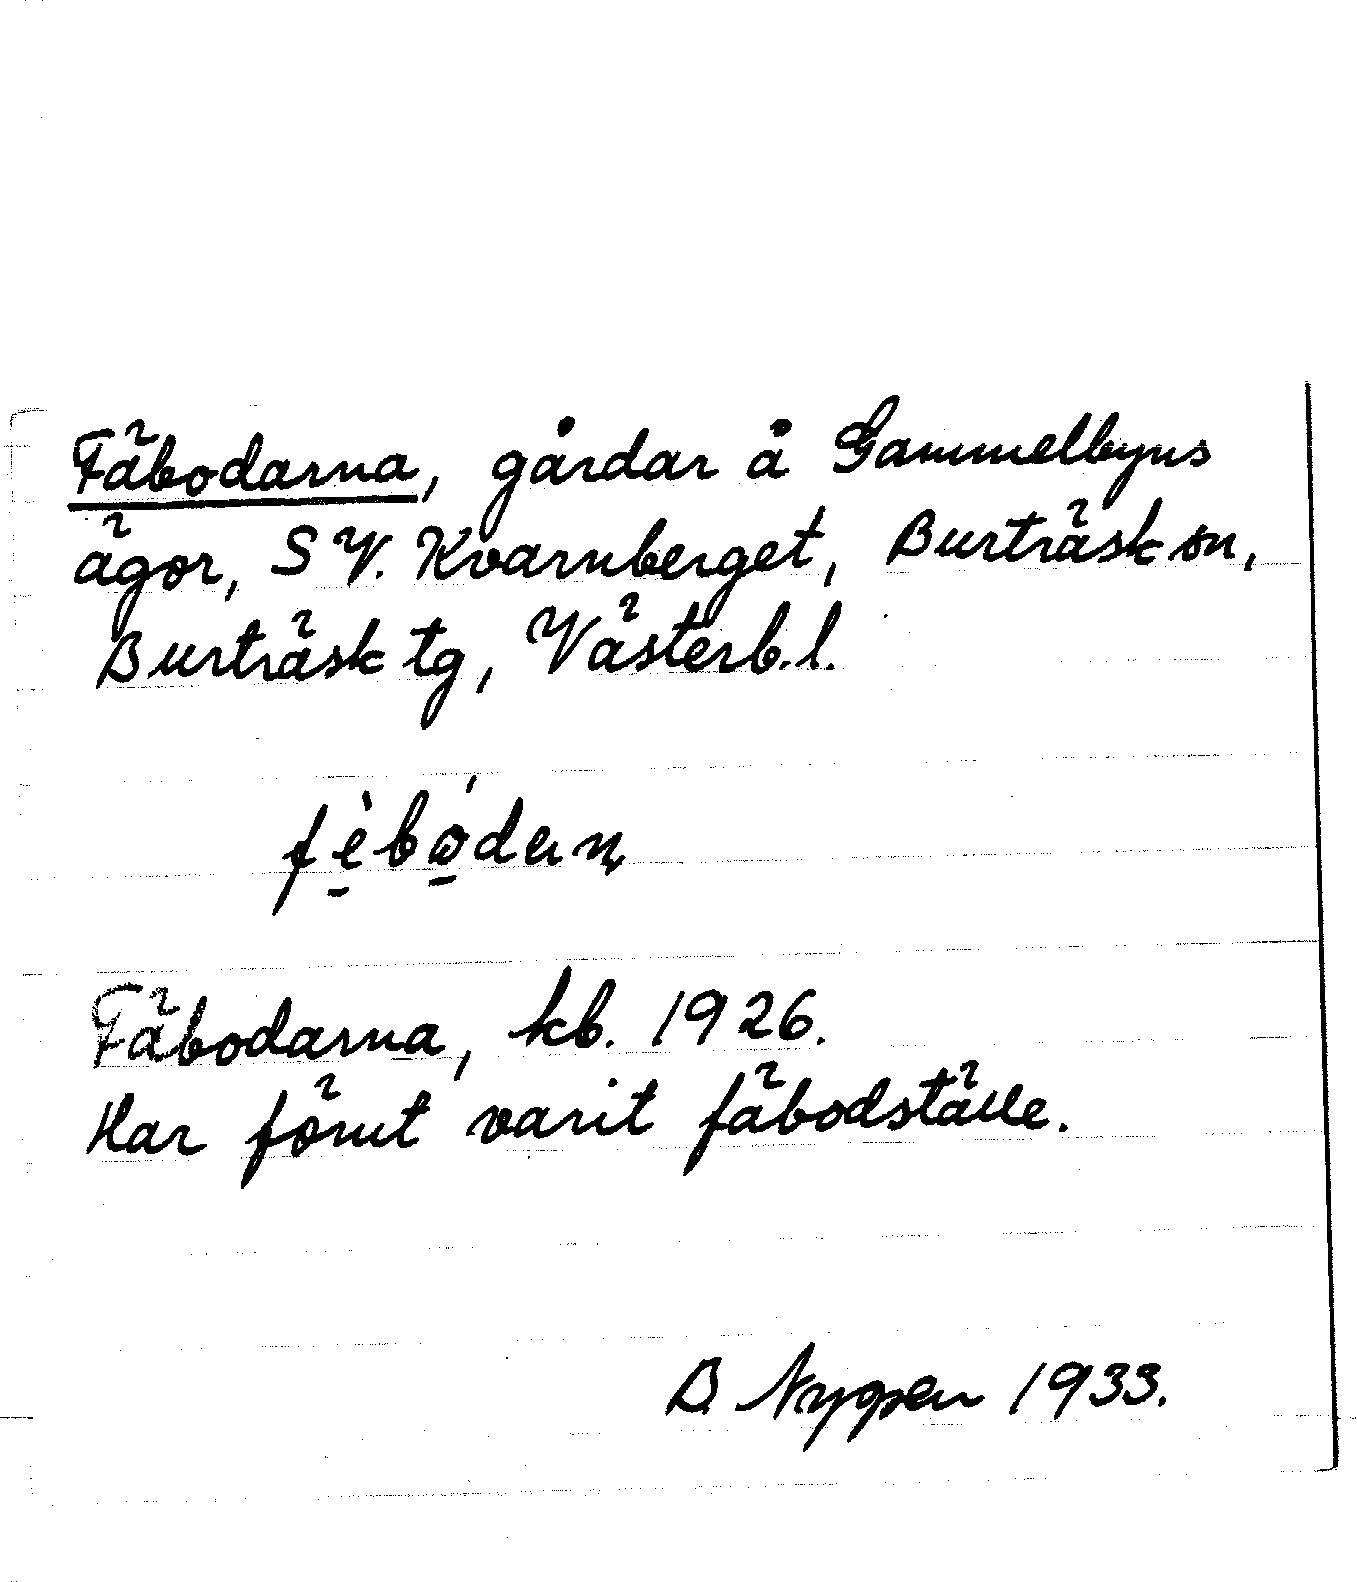 Fäbodarna, gårdar å Gammelbyns
ägor, SV. Kvarnberget, Burträsk sn,
Burträsk tg, Västerb.l.
Fäbodarna, kb. 1926.
Har förut varit fäbodställe.
B. Nygren 1933.